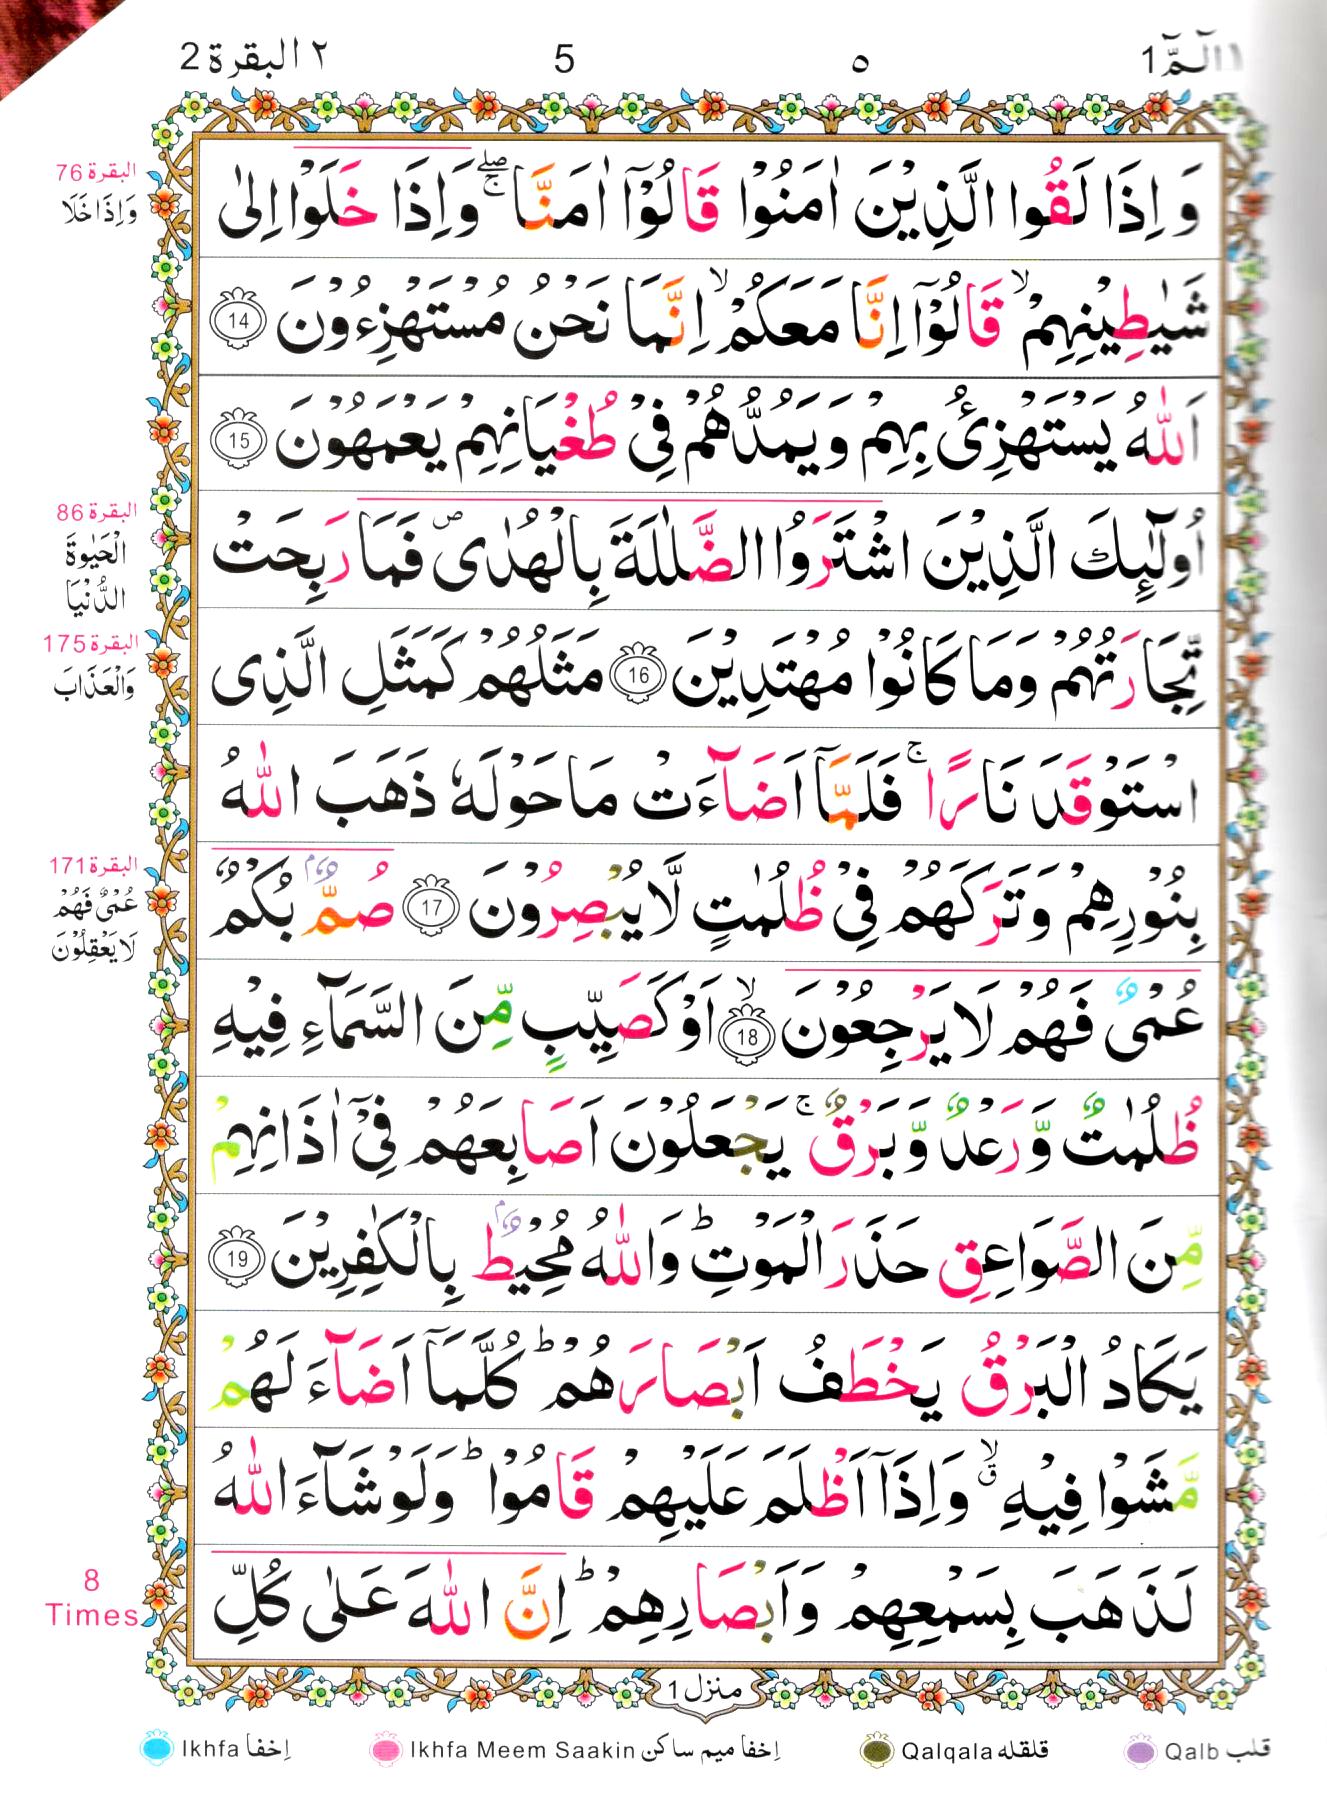 ٢ البقرة 2
5
٥
١ الٓمّٓ 1
وَ اِذَا لَقُوا الَّذِيْنَ اٰمَنُوْا قَالُوْٓا اٰمَنَّا ۖۚ وَ اِذَا خَلَوْا اِلٰى
شَيٰطِيْنِهِمْ ۙ قَالُوْٓا اِنَّا مَعَكُمْ ۙ اِنَّمَا نَحْنُ مُسْتَهْزِءُوْنَ 14
اَللّٰهُ يَسْتَهْزِئُ بِهِمْ وَ يَمُدُّهُمْ فِيْ طُغْيَانِهِمْ يَعْمَهُوْنَ 15
اُولٰٓئِكَ الَّذِيْنَ اشْتَرَوُا الضَّلٰلَةَ بِالْهُدٰى ۪ فَمَا رَبِحَتْ
تِّجَارَتُهُمْ وَ مَا كَانُوْا مُهْتَدِيْنَ 16 مَثَلُهُمْ كَمَثَلِ الَّذِى
اسْتَوْقَدَ نَارًا ۚ فَلَمَّآ اَضَآءَتْ مَا حَوْلَهٗ ذَهَبَ اللّٰهُ
بِنُوْرِهِمْ وَ تَرَكَهُمْ فِيْ ظُلُمٰتٍ لَّا يُبْصِرُوْنَ 17 صُمٌّۢ بُكْمٌ
عُمْىٌ فَهُمْ لَا يَرْجِعُوْنَ ۙ 18 اَوْ كَصَيِّبٍ مِّنَ السَّمَآءِ فِيْهِ
ظُلُمٰتٌ وَّ رَعْدٌ وَّ بَرْقٌ ۚ يَجْعَلُوْنَ اَصَابِعَهُمْ فِيْٓ اٰذَانِهِمْ
مِّنَ الصَّوَاعِقِ حَذَرَ الْمَوْتِ ؕ وَ اللّٰهُ مُحِيْطٌۢ بِالْكٰفِرِيْنَ 19
يَكَادُ الْبَرْقُ يَخْطَفُ اَبْصَارَهُمْ ؕ كُلَّمَآ اَضَآءَ لَهُمْ
مَّشَوْا فِيْهِ ۙۗ وَ اِذَآ اَظْلَمَ عَلَيْهِمْ قَامُوْا ؕ وَ لَوْ شَآءَ اللّٰهُ
لَذَهَبَ بِسَمْعِهِمْ وَ اَبْصَارِهِمْ ؕ اِنَّ اللّٰهَ عَلٰى كُلِّ
البقرة 76
وَ اِذَا خَلَا
البقرة 86
الْحَيٰوةَ
الدُّنْيَا
البقرة 175
وَالْعَذَابَ
البقرة 171
عُمْىٌ فَهُمْ
لَا يَعْقِلُوْنَ
8
Times
منزل 1
Ikhfa اِخفا
Ikhfa Meem Saakin اِخفا میم ساکن
Qalqala قلقله
Qalb قلب